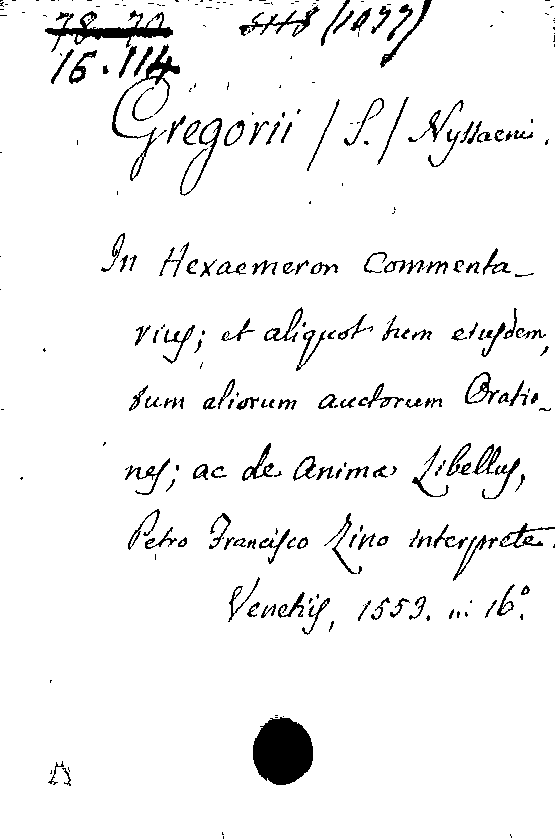 78. 70
16.114
Gregorii / S. / Nysseni.
In Hexaemeron Commenta_
rius; et aliquot tum eiusdem,
tum aliorum auctorum Oratio_
nes; ac de Anima Libellus,
Petro Francisco Zino interprete.
Venetiis, 1553. in 16º.